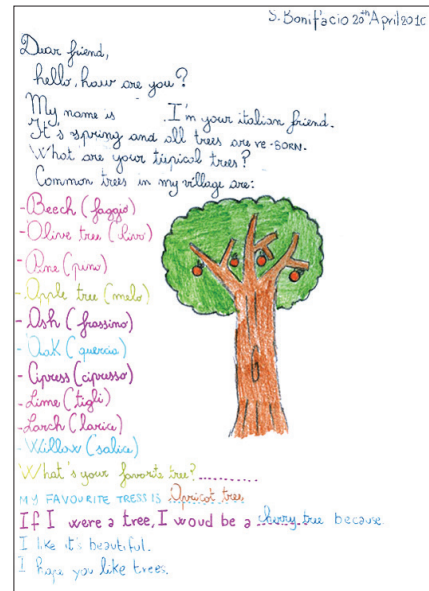 S. Bonifacio 20th April 2010
Dear friend,
hello, haw are you?
My name is I'm your italian friend.
It's spring and all trees are re-born.
What are your tiepical trees?
Common trees in my village are:
-Beech (faggio)
-Olive tree (ulivo)
-Pine (pino)
-Apple tree (melo)
-Ash (frassino)
-Oak (quercia)
-Cipress (cipresso)
-Lime (tigli)
-Larch (larice)
-Willow (salice)
What's your favorite tree?............
MY FAVOURITE TRESS IS Apricot tree
If I were a tree, I woud be a cherry tree because
I like it's beautiful.
I hope you like trees.